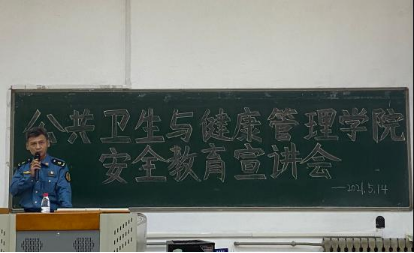 公共卫生与健康管理学院
安全教育宣讲会
—2021.5.14